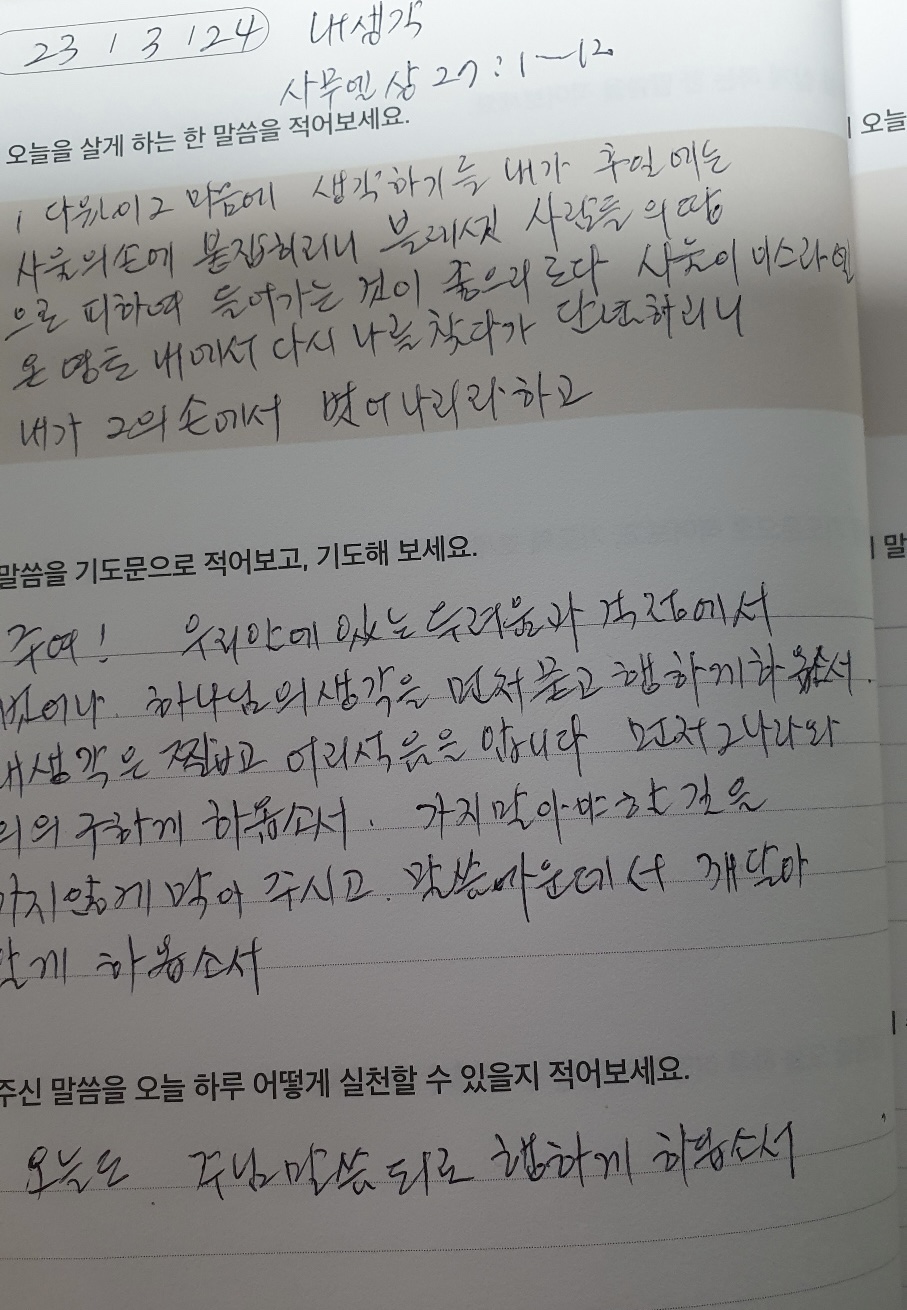 23 / 3 / 24 내생각
사무엘상 27:1-12
오늘을 살게 하는 한 말씀을 적어보세요.
오늘
1 다윗이 그 마음에 생각하기를 내가 후일에는
사울의 손에 붙잡히리니 블레셋 사람들의 땅
으로 피하여 들어가는 것이 좋으리로다 사울이 이스라엘
온 영토 내에서 다시 나를 찾다가 단념하리니
내가 그의 손에서 벗어나리라 하고
말씀을 기도문으로 적어보고, 기도해 보세요.
말
주여! 우리안에 있는 두려움과 걱정에서
벗어나 하나님의 생각을 먼저 묻고 행하게 하옵소서.
내생각은 짧고 어리석음을 압니다 먼저 그나라와
의의 구하게 하옵소서. 가지말아야 할 길을
가지않게 막아 주시고 말씀가운데서 깨달아
알게 하옵소서
주신 말씀을 오늘 하루 어떻게 실천할 수 있을지 적어보세요.
오늘도 주님말씀 되로 행하게 하옵소서